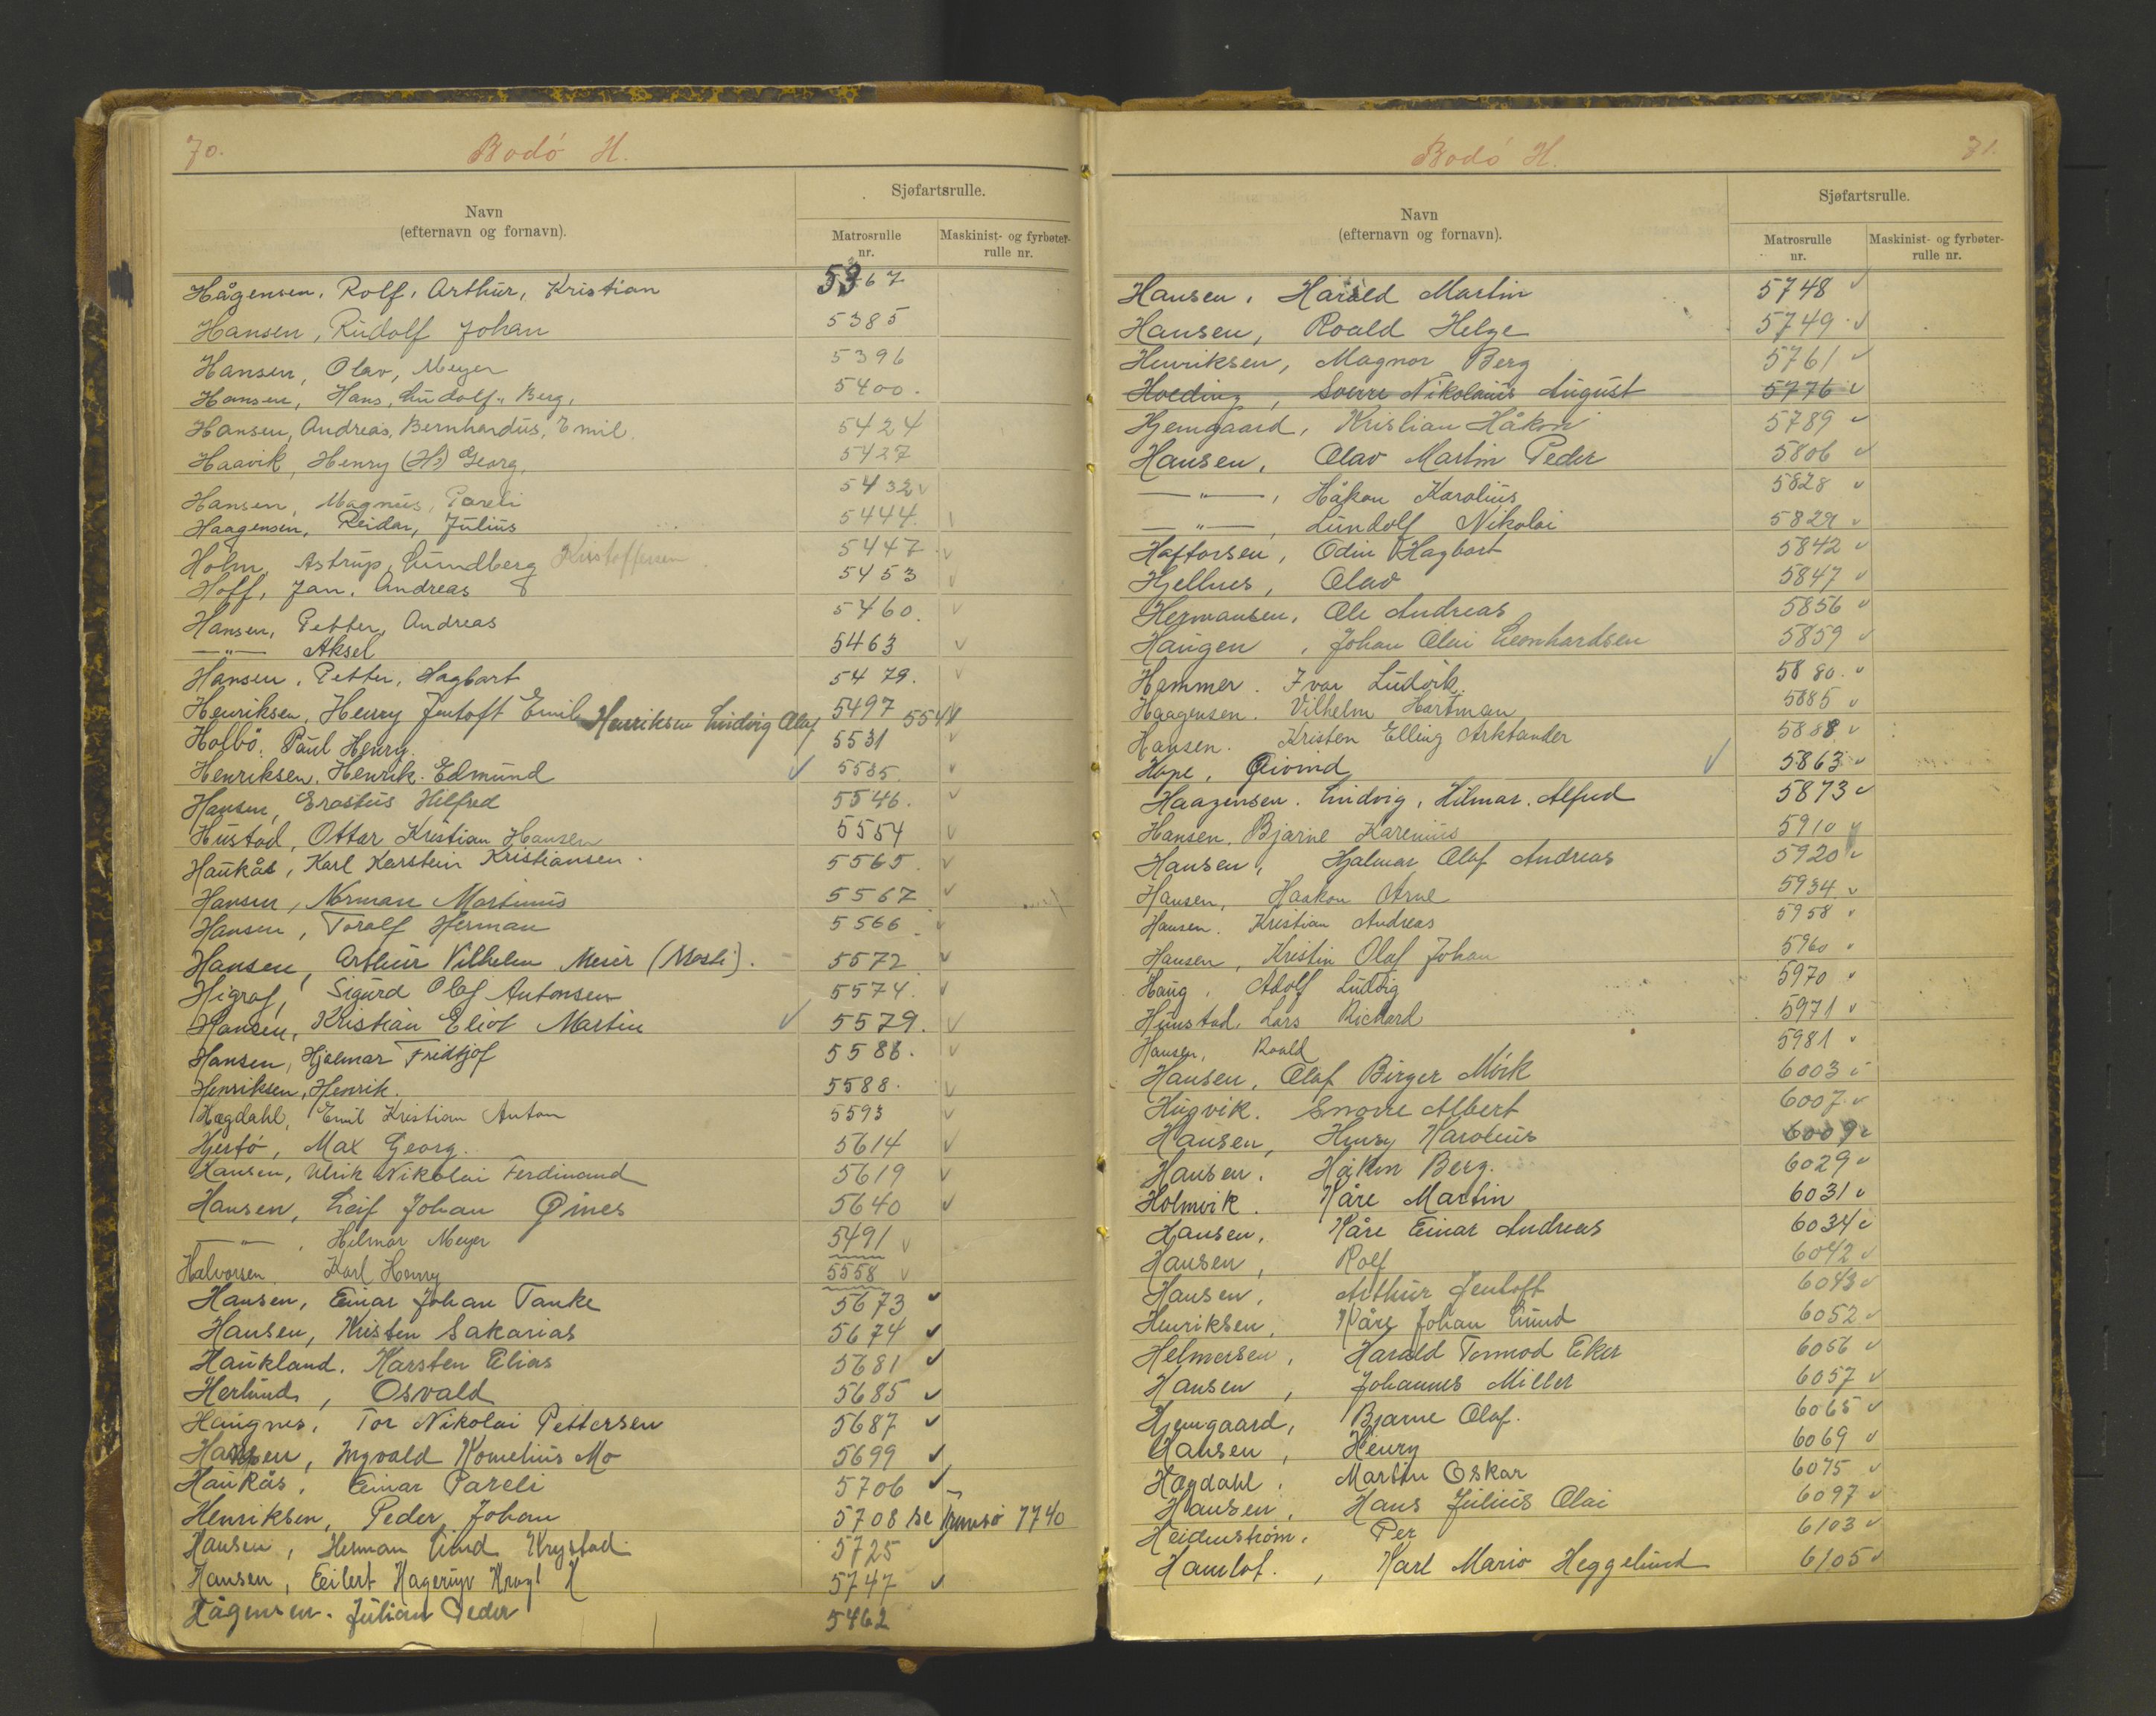 70.
Bodó H.
Navn
(efternavn og fornavn).
Sjøfartsrulle.
Matrosrulle
nr.
Maskinist- og fyrbøter-
rulle nr.
Hågensen, Rolf, Arthur, Kristian 5367
Hansen, Rudolf Johan 5385
Hansen, Olav, Meyer 5396
Hansen, Hans, Lindolf, Berg, 5400.
Hansen, Andreas, Bernhardus, Emil. 5424
Haavik, Henry (H) Georg, 5427
Hansen, Magnus, Pareli 5432 v
Haagensen, Reidar, Julius 5444.
Holm, Astrup, Lundberg Kristoffersen 5447 v
Hoff, Jan. Andreas 5453 v
Hansen, Petter, Andreas 5460. v
—"— Aksel 5463 v
Hansen, Petter, Hagbart 5479. v
Henriksen, Henry Jentoft Emil 5497 Henriksen Ludvig Olaf 5541 v
Holbø. Paul Henry. 5531 v
Henriksen, Henrik. Edmund ✓ 5535. v
Hansen, Erastus Hilfred 5546. v
Hustad, Ottar Kristian Hansen 5554 v
Haukås, Karl Karstein Kristiansen. 5565. v
Hansen, Norman Martinus 5567 v
Hansen, Toralf Herman 5566. v
Hansen, Arthur Vilhelm Meier (Mosti). 5572 v
Higraf, Sigurd Olaf Antonsen 5574. v
Hansen, Kristian Eliot Martin ✓ 5579. v
Hansen, Hjalmar Fridtjof 5586. v
Henriksen, Henrik. 5588. v
Hægdahl, Emil Kristian Anton 5593 v
Hjertø, Max Georg. 5614 v
Hansen, Ulrik Nikolai Ferdinand 5619 v
Hansen, Leif Johan Øines 5640 v
—"—, Hilmar Meyer 5491 v
Halvorsen. Karl Henry 5558 v
Hansen, Einar Johan Tanke 5673 v
Hansen, Kristen Sakarias 5674 v
Haukland. Karsten Elias 5681 v
Herlund, Osvald 5685 v
Haugnes, Tor Nikolai Pettersen 5687 v
Hansen, Ingvald Kornelius Mo 5699 v
Haukås, Einar Pareli 5706 v
Henriksen, Peder Johan 5708 se Tromsø 7740
Hansen, Herman Lind Krystad 5725 v
Hansen, Eilert Hagerup 5747 v
Hågensen. Julian Peder 5462
Bodó H.
71.
Navn
(efternavn og fornavn).
Sjøfartsrulle.
Matrosrulle
nr.
Maskinist- og fyrbøter-
rulle nr.
Hansen, Harald Martin 5748 v
Hansen, Roald Helge 5749. v
Henriksen, Magnor Berg 5761 v
Hoeding, Sverre Nikolaus August 5776 v
Hjemgaard, Kristian Håkon 5789 v
Hansen, Olav Martin Peder 5806 v
—"—, Håkon Karolius 5828 v
—"—, Lundolf Nikolai 5829 v
Haftorsen, Odin Hagbart 5842 v
Hjellnes, Olav 5847 v
Hermansen, Ole Andreas 5856 v
Haugen, Johan Olai Leonhardsen 5859 v
Hammer. Ivar Ludvik. 5880. v
Haagensen. Vilhelm Hartman 5885 v
Hansen. Kristen Elling Arktander 5888 v
Hope, Øivind ✓ 5863 v
Haagensen. Ludvig, Hilmar. Alfred 5873 v
Hansen, Bjarne Karenius 5910 v
Hansen, Hjalmar Olaf Andreas 5920 v
Hansen, Haakon Arne 5934 v
Hansen. Kristian Andreas 5958 v
Hansen, Kristin Olaf Johan 5960 v
Haug, Adolf Ludvig 5970 v
Hunstad, Lars Richard 5971 v
Hansen, Roald 5981 v
Hansen, Olaf Birger Mörk 6003 v
Hugvik. Snorre Albert 6007 v
Hansen, Henry Karolius 6009 v
Hansen. Håkon Berg. 6029 v
Holmvik. Kåre Martin 6031 v
Hansen, Kåre Einar Andreas 6034 v
Hansen, Rolf 6042 v
Hansen, Arthur Jentoft 6043 v
Henriksen, Kåre Johan Lund 6052 v
Helmersen, Harald Tormod Eker 6056 v
Hansen, Johannes Miller 6057 v
Hjemgaard, Bjarne Olaf. 6065 v
Hansen, Henry 6069 v
Hægdahl, Martin Oskar 6075 v
Hansen, Hans Julius Olai 6097 v
Heidenstrøm, Per 6103 v
Hamlot., Karl Mario Heggelund 6105 v